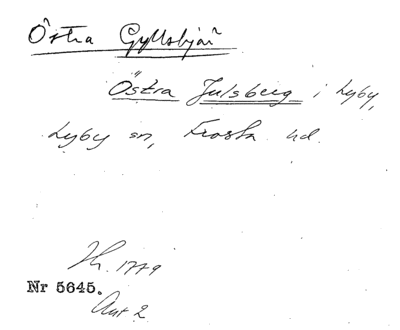 Östra Gyllsbjär
Östra Julsberg i Lyby,
Lyby sn, Frosta hd.
Hr. 1779
Nr 5645.
Akt 2